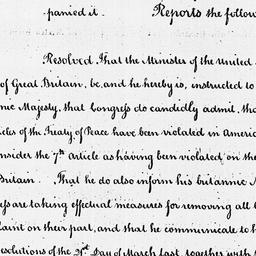 panied it. Reports the follow
Resolved, That the Minister of the United
of Great Britain, be, and he hereby is, instructed to
nic Majesty, that Congress do candidly admit, tha
cles of the Treaty of Peace have been violated in Americ
nsider the 7th article as having been violated on the
Britain. That he do also inform his britannic M
ess are taking effectual measures for removing all
laint on their part, and that he communicate to h
esolutions of the 21st Day of March last together with